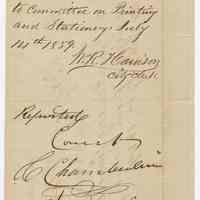 to Committee on Printing
and Stationery July
14th 1859.
W.R. Harrison
City Clk.
Reported
Correct
C Chamberlain